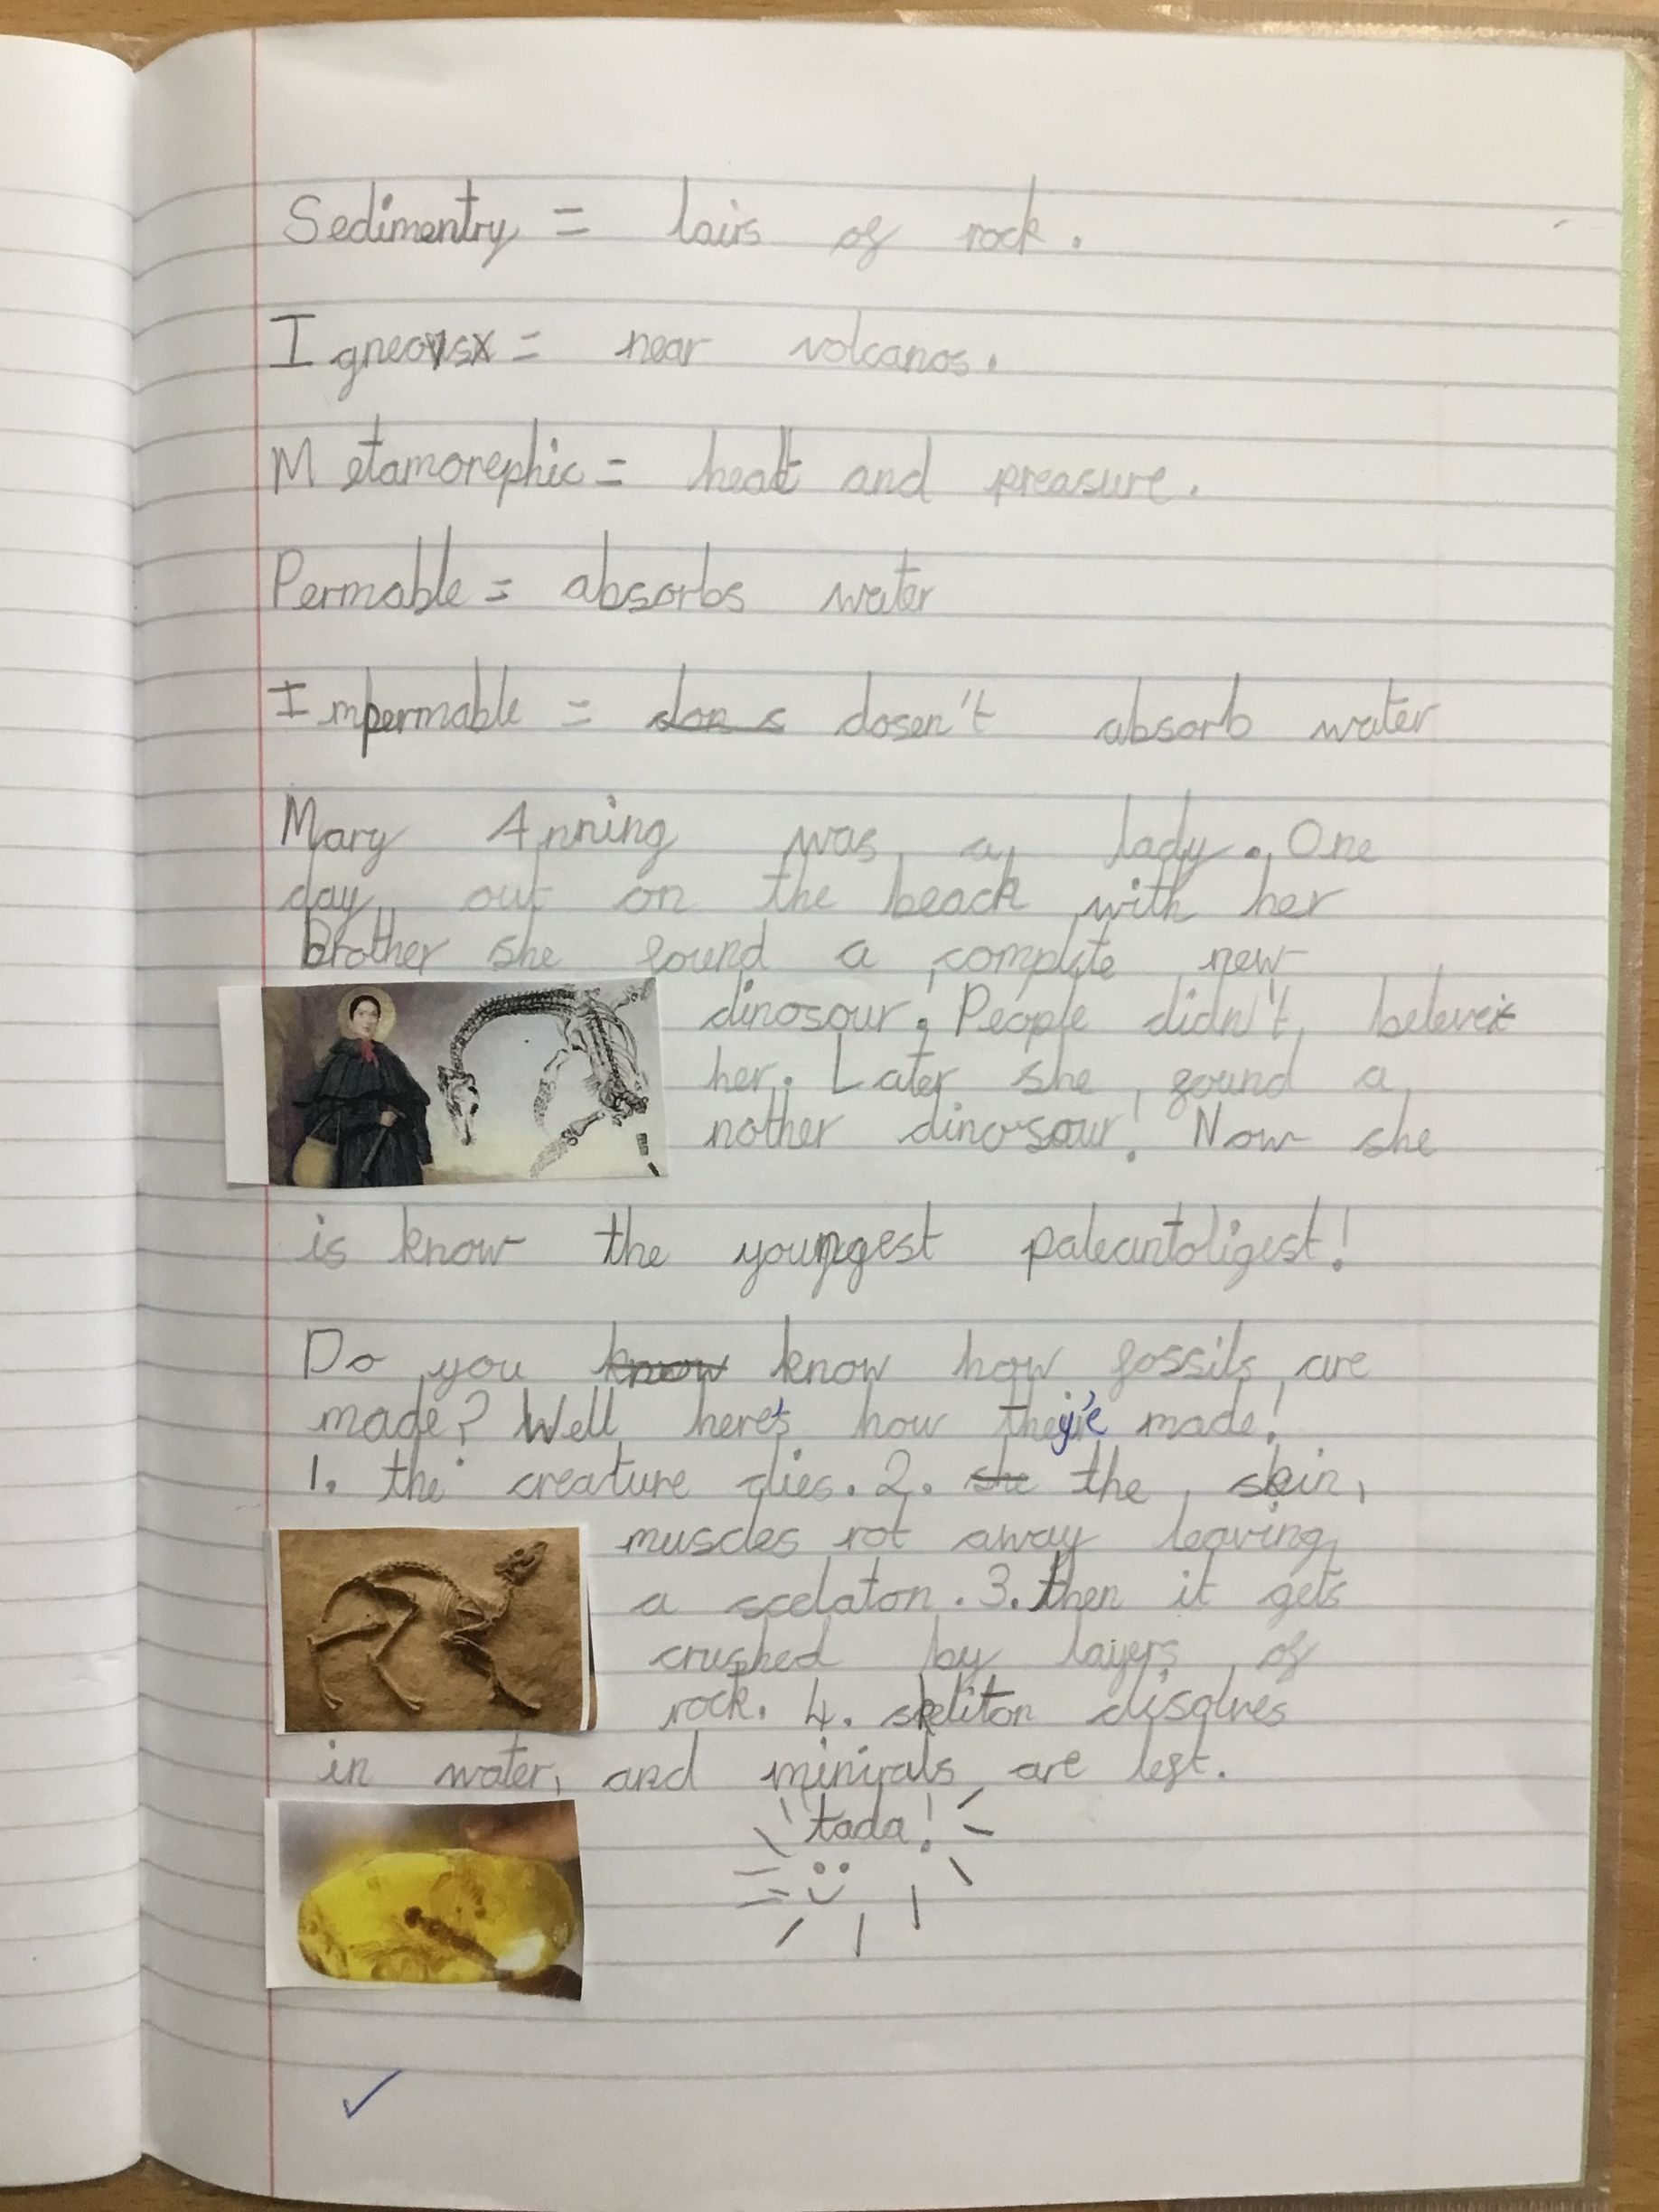 Sedimentry = lairs of rock.
Igneous = near volcanos.
Metamorephic = heat and preasure.
Permable = absorbs water
Impermable = dosen't absorb water
Mary Anning was a lady. One
day out on the beach with her
brother she found a complete new
dinosour. People didn't beleve
her. Later she found a
nother dinosour! Now she
is know the youngest paleantoligest!
Do you know know how fossils are
made? Well here's how they're made!
1. the creature dies. 2. she the skin,
muscles rot away leaving
a scelaton. 3. then it gets
crushed by layers of
rock. 4. skeliton disolves
in water, and minirals are left.
tada!